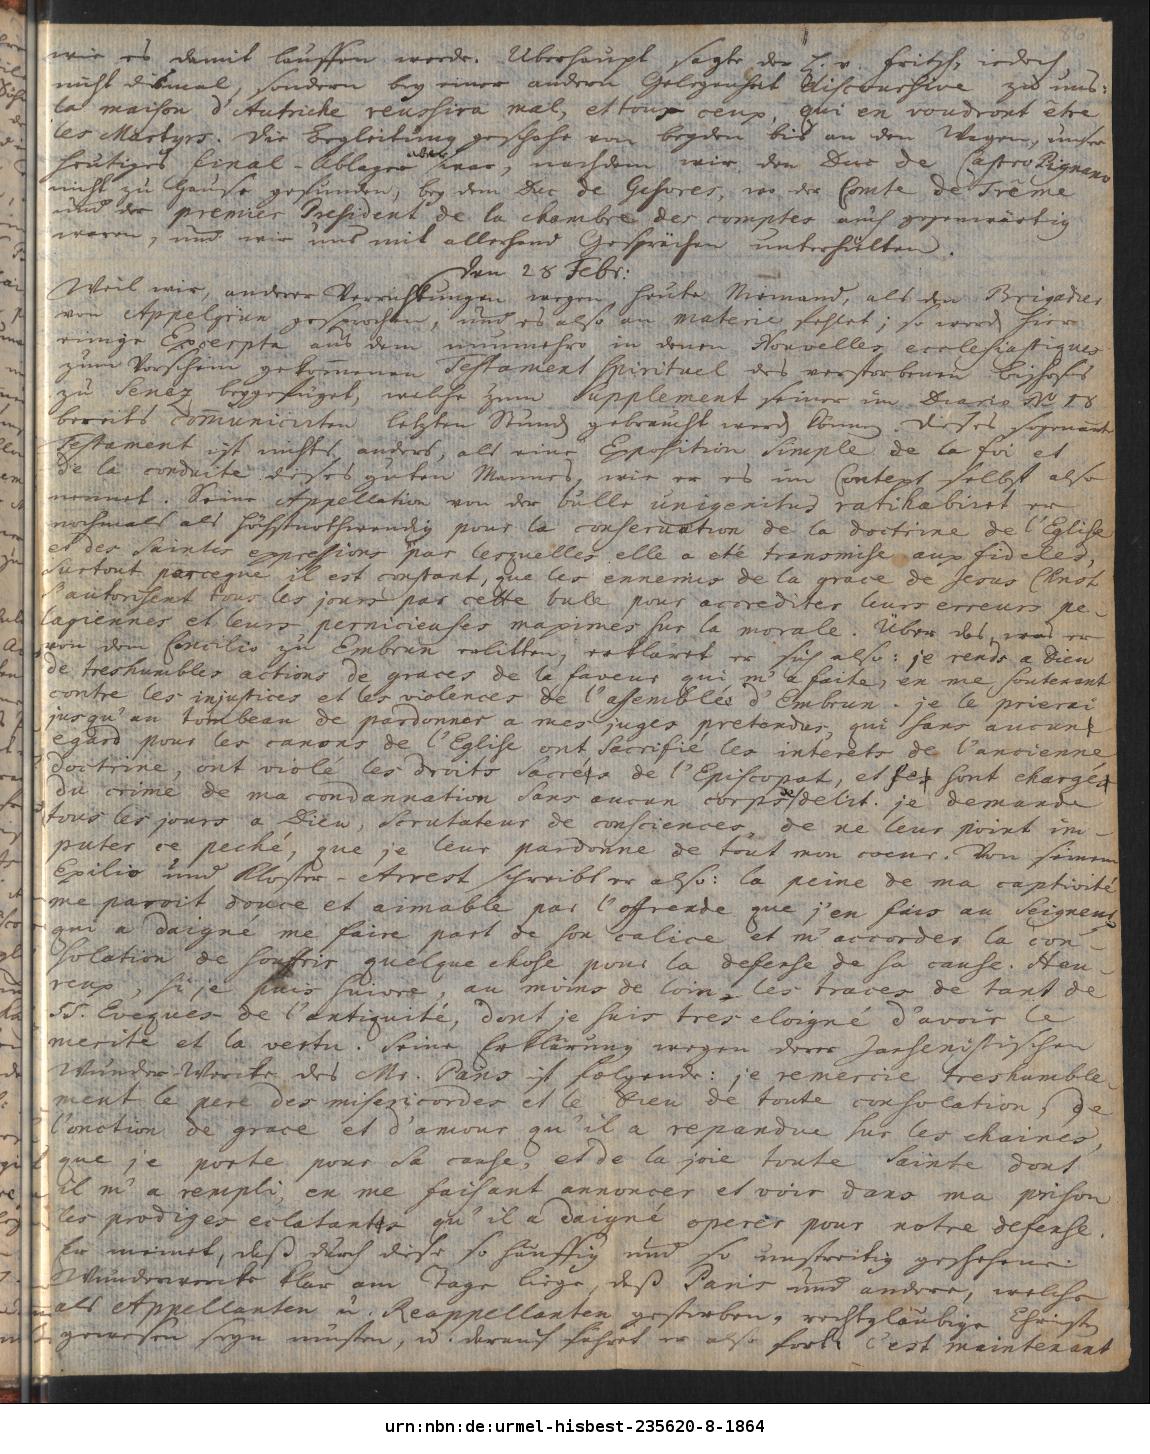 86
wie es damit lauffen werde. Uberhaupt sagte der H. v. Fritsch, iedoch
nicht dismal, sondern bey einer andern Gelegenheit discoursive zu uns:
la maison d'Autriche reussira mal, et tous ceux, qui en voudront être
les Martyrs. Die Begleitung geschahe von beyden bis an den Wagen, unser
heutiges Final-Ablager aber war, nachdem wir den Duc de Castropignano
nicht zu Hause gefunden, bey dem Duc de Gesvres, wo der Comte de Treme
und der premier President de la chambre des comptes auch gegenwärtig
waren, und wir uns mit allerhand Gesprächen unterhielten.
den 28 Febr:
Weil wir, anderer Verrichtungen wegen, heute Niemand, als den Brigadier
von Appelgrün gesprochen, und es also an materie fehlet; so werden hier
einige Excerpta aus dem nunmehro in denen Nouvelles ecclesiastiques
zum Vorschein gekommenen Testament spirituel des verstorbenen Bischofs
zu Senez beygefüget, welche zum Supplement seiner im Diario No 18
bereits communicirten letzten Stunden gebraucht werden können. Dieses sogenannte
Testament ist nichts anders, als eine Exposition simple de la foi et
de la conduite dieses guten Mannes, wie er es im Context selbst also
nennet. Seine Appellation von der bulle unigenitus ratihabiret er
nochmals als höchstnothwendig pour la conservation de la doctrine de l'Eglise
et des saintes expressions par lesquelles elle a eté transmise aux fideles,
surtout parceque il est constant, que les ennemis de la grace de Jesus Christ
s'autorisent tous les jours par cette bule pour accrediter leurs erreurs pe-
lagiennes et leurs pernicieuses maximes sur la morale. Über das, was er
von dem Concilio zu Embrun erlitten, erkläret er sich also: je rends a Dieu
de treshumbles actions de graces de la faveur qui m'a faite, en me soutenant
contre les injustices et les violences de l'assemblée d'Embrun. je le prierai
jusqu'au tombeau de pardonner a mes juges pretendus, qui sans aucun
egard pour les canons de l'Eglise ont sacrifié les interets de l'ancienne
doctrine, ont violé les droits sacrés de l'Episcopat, et se sont chargés
du crime de ma condannation sans aucun corps de delit. je demande
tous les jours a Dieu, scrutateur de consciences, de ne leur point im-
puter ce peché, que je leur pardonne de tout mon coeur. Von seinem
Exilio und Kloster-Arrest schreibt er also: la peine de ma captivité
me paroit douce et aimable par l'offrende que j'en fais au Seigneur,
qui a daigné me faire part de son calice et m'accorder la con-
solation de souffrir quelque chose pour la defense de sa cause. Heu-
reux, si je puis suivre, au moins de loin, les traces de tant de
SS. Eveques de l'antiquité, dont je suis tres eloigné d'avoir le
merite et la vertu. Seine Erklärung wegen derer Jansenistischen
Wunder-Wercke des Mr. Paris ist folgende: je remercie treshumble-
ment le pere des misericordes et le Dieu de toute consolation, de
l'onction de grace et d'amour qu'il a repandue sur les chaines,
que je porte pour sa cause, et de la joie toute sainte dont
il m'a rempli, en me faisant annoncer et voir dans ma prison
les prodiges eclatants qu'il a daigné operer pour notre defense.
Er meinet, daß durch diese so häuffig und so unstreitig geschehene
Wunderwercke klar am Tage liege, daß Paris und andere, welche
als Appellanten u. Reappellanten gestorben, rechtgläubige Christen
gewesen seyn müsten, u. darauf fähret er also fort: c'est maintenant
urn:nbn:de:urmel-hisbest-235620-8-1864